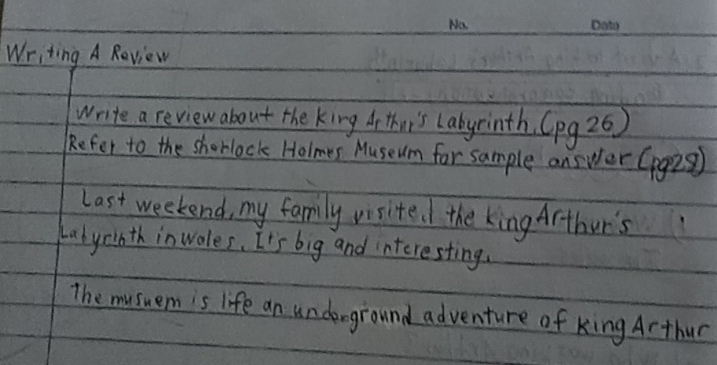 No. Date
Writing A Review
Write a review about the king Arthur's Labyrinth. (pg 26)
Refer to the sherlock Holmes Museum for sample answer (pg28)
Last weekend, my family visited the king Arthur's
Labyrinth in wales. It's big and interesting.
The musuem is life an underground adventure of king Arthur